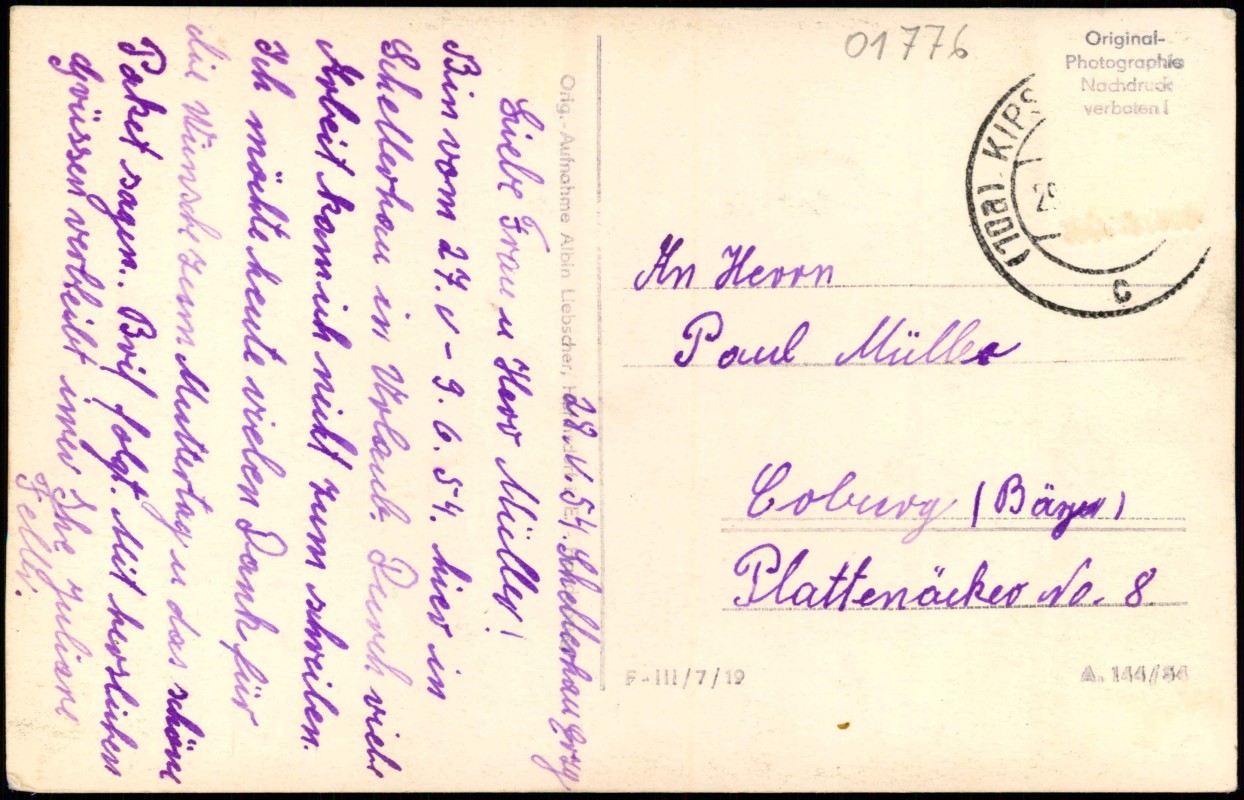 28.V.54. Schellerhau Erzg
Liebe Frau u Herr Müller!
Bin vom 27.V - 9.6.54. hier in
Schellerhau in Urlaub. Durch viele
Arbeit kam ich nicht zum schreiben.
Ich möchte heute vielen Dank für
die Wünsche zum Muttertag u das schöne
Paket sagen. Brif folgt. Mit herslichen
Grüssen verbleibt imer Ihre Juliane
Orig.-Aufnahme Albin Liebscher,
01776
Original-
Photographie
Nachdruck
verboten!
(10a) KIPS
29
c
An Herrn
Paul Müller
Coburg (Bayer)
Plattenäcker No. 8
F-III/7/19
A. 144/54